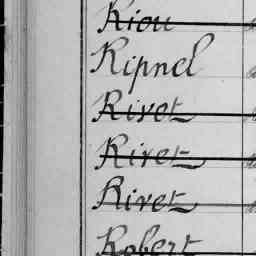 Riou
Ripnel
Rivet
Rivet
Rivet
Robert